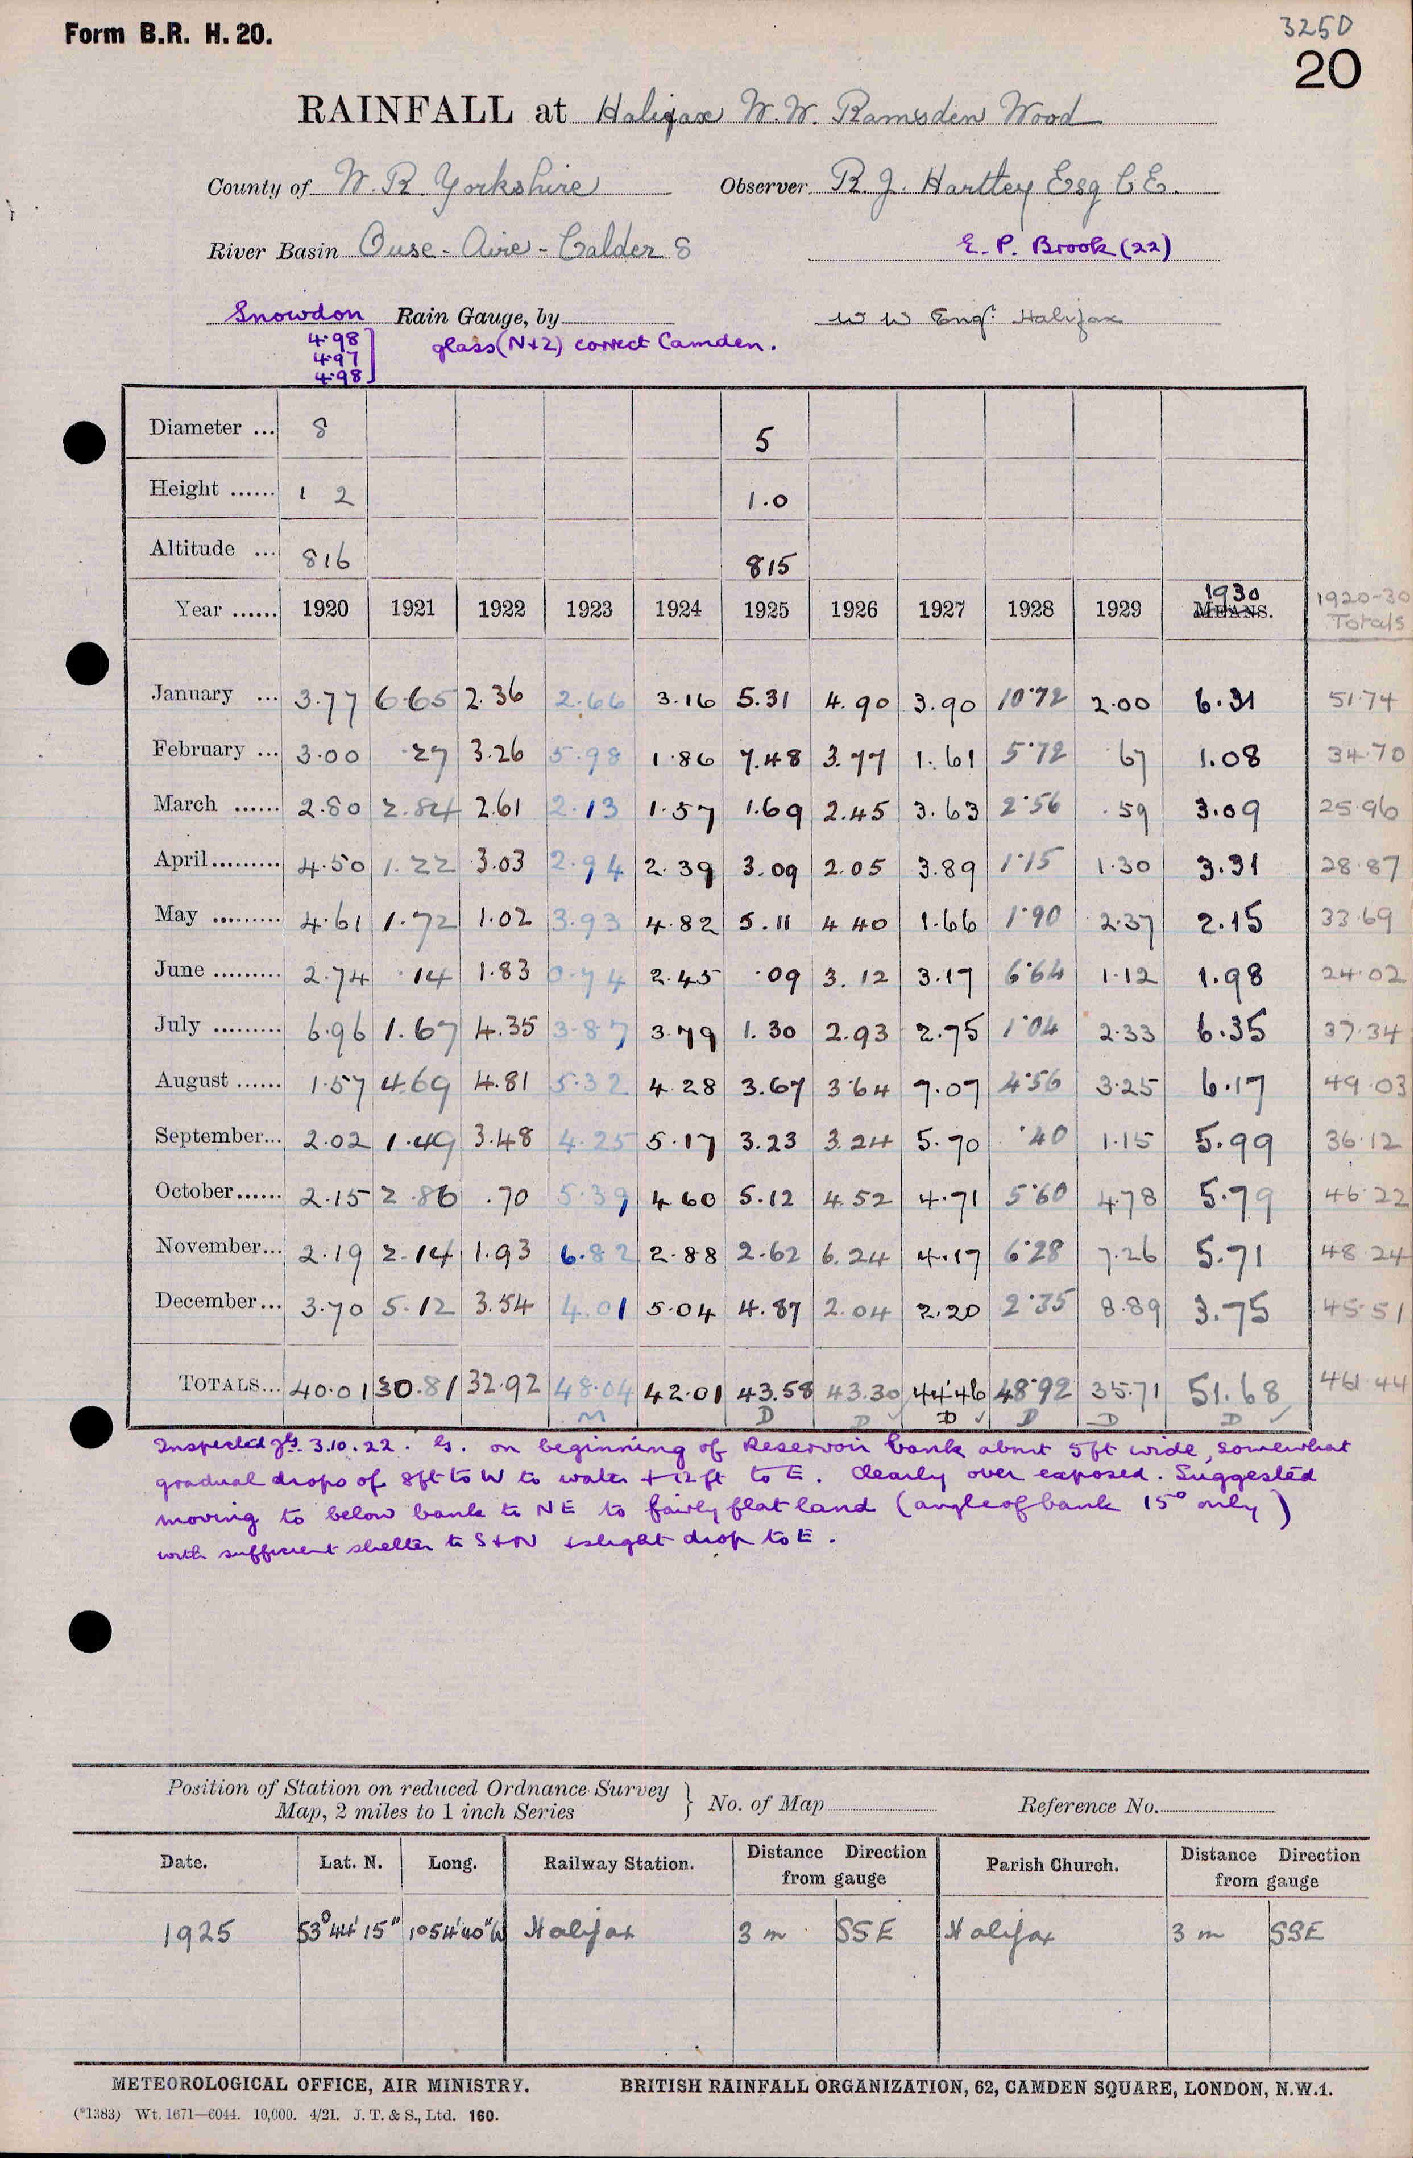 Form B.R. H. 20.
3250
20
RAINFALL at Halifax W.W. Ramsden Wood
County of W. R. Yorkshire Observer R. J. Hartley Esq C E.
River Basin Ouse - Aire - Calder S E. P. Brook (22)
Snowdon Rain Gauge, by W W Engr. Halifax
4.98
4.97
4.98
glass (N+2) correct Camden.
Diameter ... 8 5
Height ...... 1 2 1.0
Altitude ... 816 815
Year ...... 1920 1921 1922 1923 1924 1925 1926 1927 1928 1929 1930 MEANS. 1920-30 Totals
January ... 3.77 6.65 2.36 2.66 3.16 5.31 4.90 3.90 10.72 2.00 6.31 51.74
February ... 3.00 .27 3.26 5.98 1.86 7.48 3.77 1.61 5.72 .67 1.08 34.70
March ...... 2.80 2.84 2.61 2.13 1.57 1.69 2.45 3.63 2.56 .59 3.09 25.96
April ......... 4.50 1.22 3.03 2.94 2.39 3.09 2.05 3.89 1.15 1.30 3.31 28.87
May ......... 4.61 1.72 1.02 3.93 4.82 5.11 4.40 1.66 1.90 2.37 2.15 33.69
June ......... 2.74 .14 1.83 0.74 2.45 .09 3.12 3.17 6.64 1.12 1.98 24.02
July ......... 6.96 1.67 4.35 3.87 3.79 1.30 2.93 2.75 1.04 2.33 6.35 37.34
August ...... 1.57 4.69 4.81 5.32 4.28 3.67 3.64 7.07 4.56 3.25 6.17 49.03
September... 2.02 1.49 3.48 4.25 5.17 3.23 3.24 5.70 .40 1.15 5.99 36.12
October...... 2.15 2.86 .70 5.39 4.60 5.12 4.52 4.71 5.60 4.78 5.79 46.22
November... 2.19 2.14 1.93 6.82 2.88 2.62 6.24 4.17 6.28 7.26 5.71 48.24
December... 3.70 5.12 3.54 4.01 5.04 4.87 2.04 2.20 2.35 8.89 3.75 45.51
TOTALS... 40.01 30.81 32.92 48.04 42.01 43.58 43.30 44.46 48.92 35.71 51.68 461.44
M D D D D D D
Inspected 3.10.22. G. on beginning of Reservoir bank about 5ft wide, somewhat
gradual drops of 8ft to W to water + 12 ft to E. Clearly over exposed. Suggested
moving to below bank to NE to fairly flat land (angle of bank 15° only)
with sufficient shelter to S+W & slight drop to E.
Position of Station on reduced Ordnance Survey
Map, 2 miles to 1 inch Series } No. of Map Reference No.
Date. Lat. N. Long. Railway Station. Distance Direction from gauge Parish Church. Distance Direction from gauge
1925 53°44'15" 1°54'40"W Halifax 3 m SSE Halifax 3 m SSE
METEOROLOGICAL OFFICE, AIR MINISTRY. BRITISH RAINFALL ORGANIZATION, 62, CAMDEN SQUARE, LONDON, N.W.1.
(*1383) Wt. 1671—6044. 10,000. 4/21. J. T. & S., Ltd. 160.